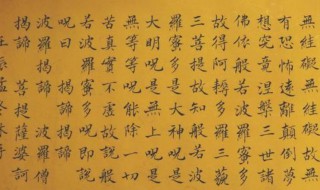 無絓礙無絓礙故無
有恐怖遠離顛倒夢
想究竟涅槃三世諸
佛依般若波羅蜜多
故得阿耨多羅三藐
三菩提故知般若波
羅蜜多是大神呪是
大明呪是無上呪是
無等等呪能除一切
苦真實不虛故說般
若波羅蜜多呪即說
呪曰 揭諦揭諦
波羅揭諦 波羅僧
揭諦 菩提薩婆訶